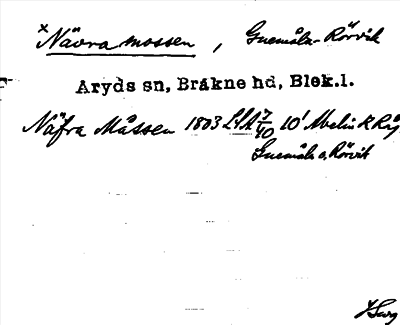 x Nävramossen, Guemåla-Rörvik
Aryds sn, Bräkne hd, Blek.l.
Näfra Måssen 1803 LSA 7/40 10' Abelin K Rg
Guemåla o. Rörvik